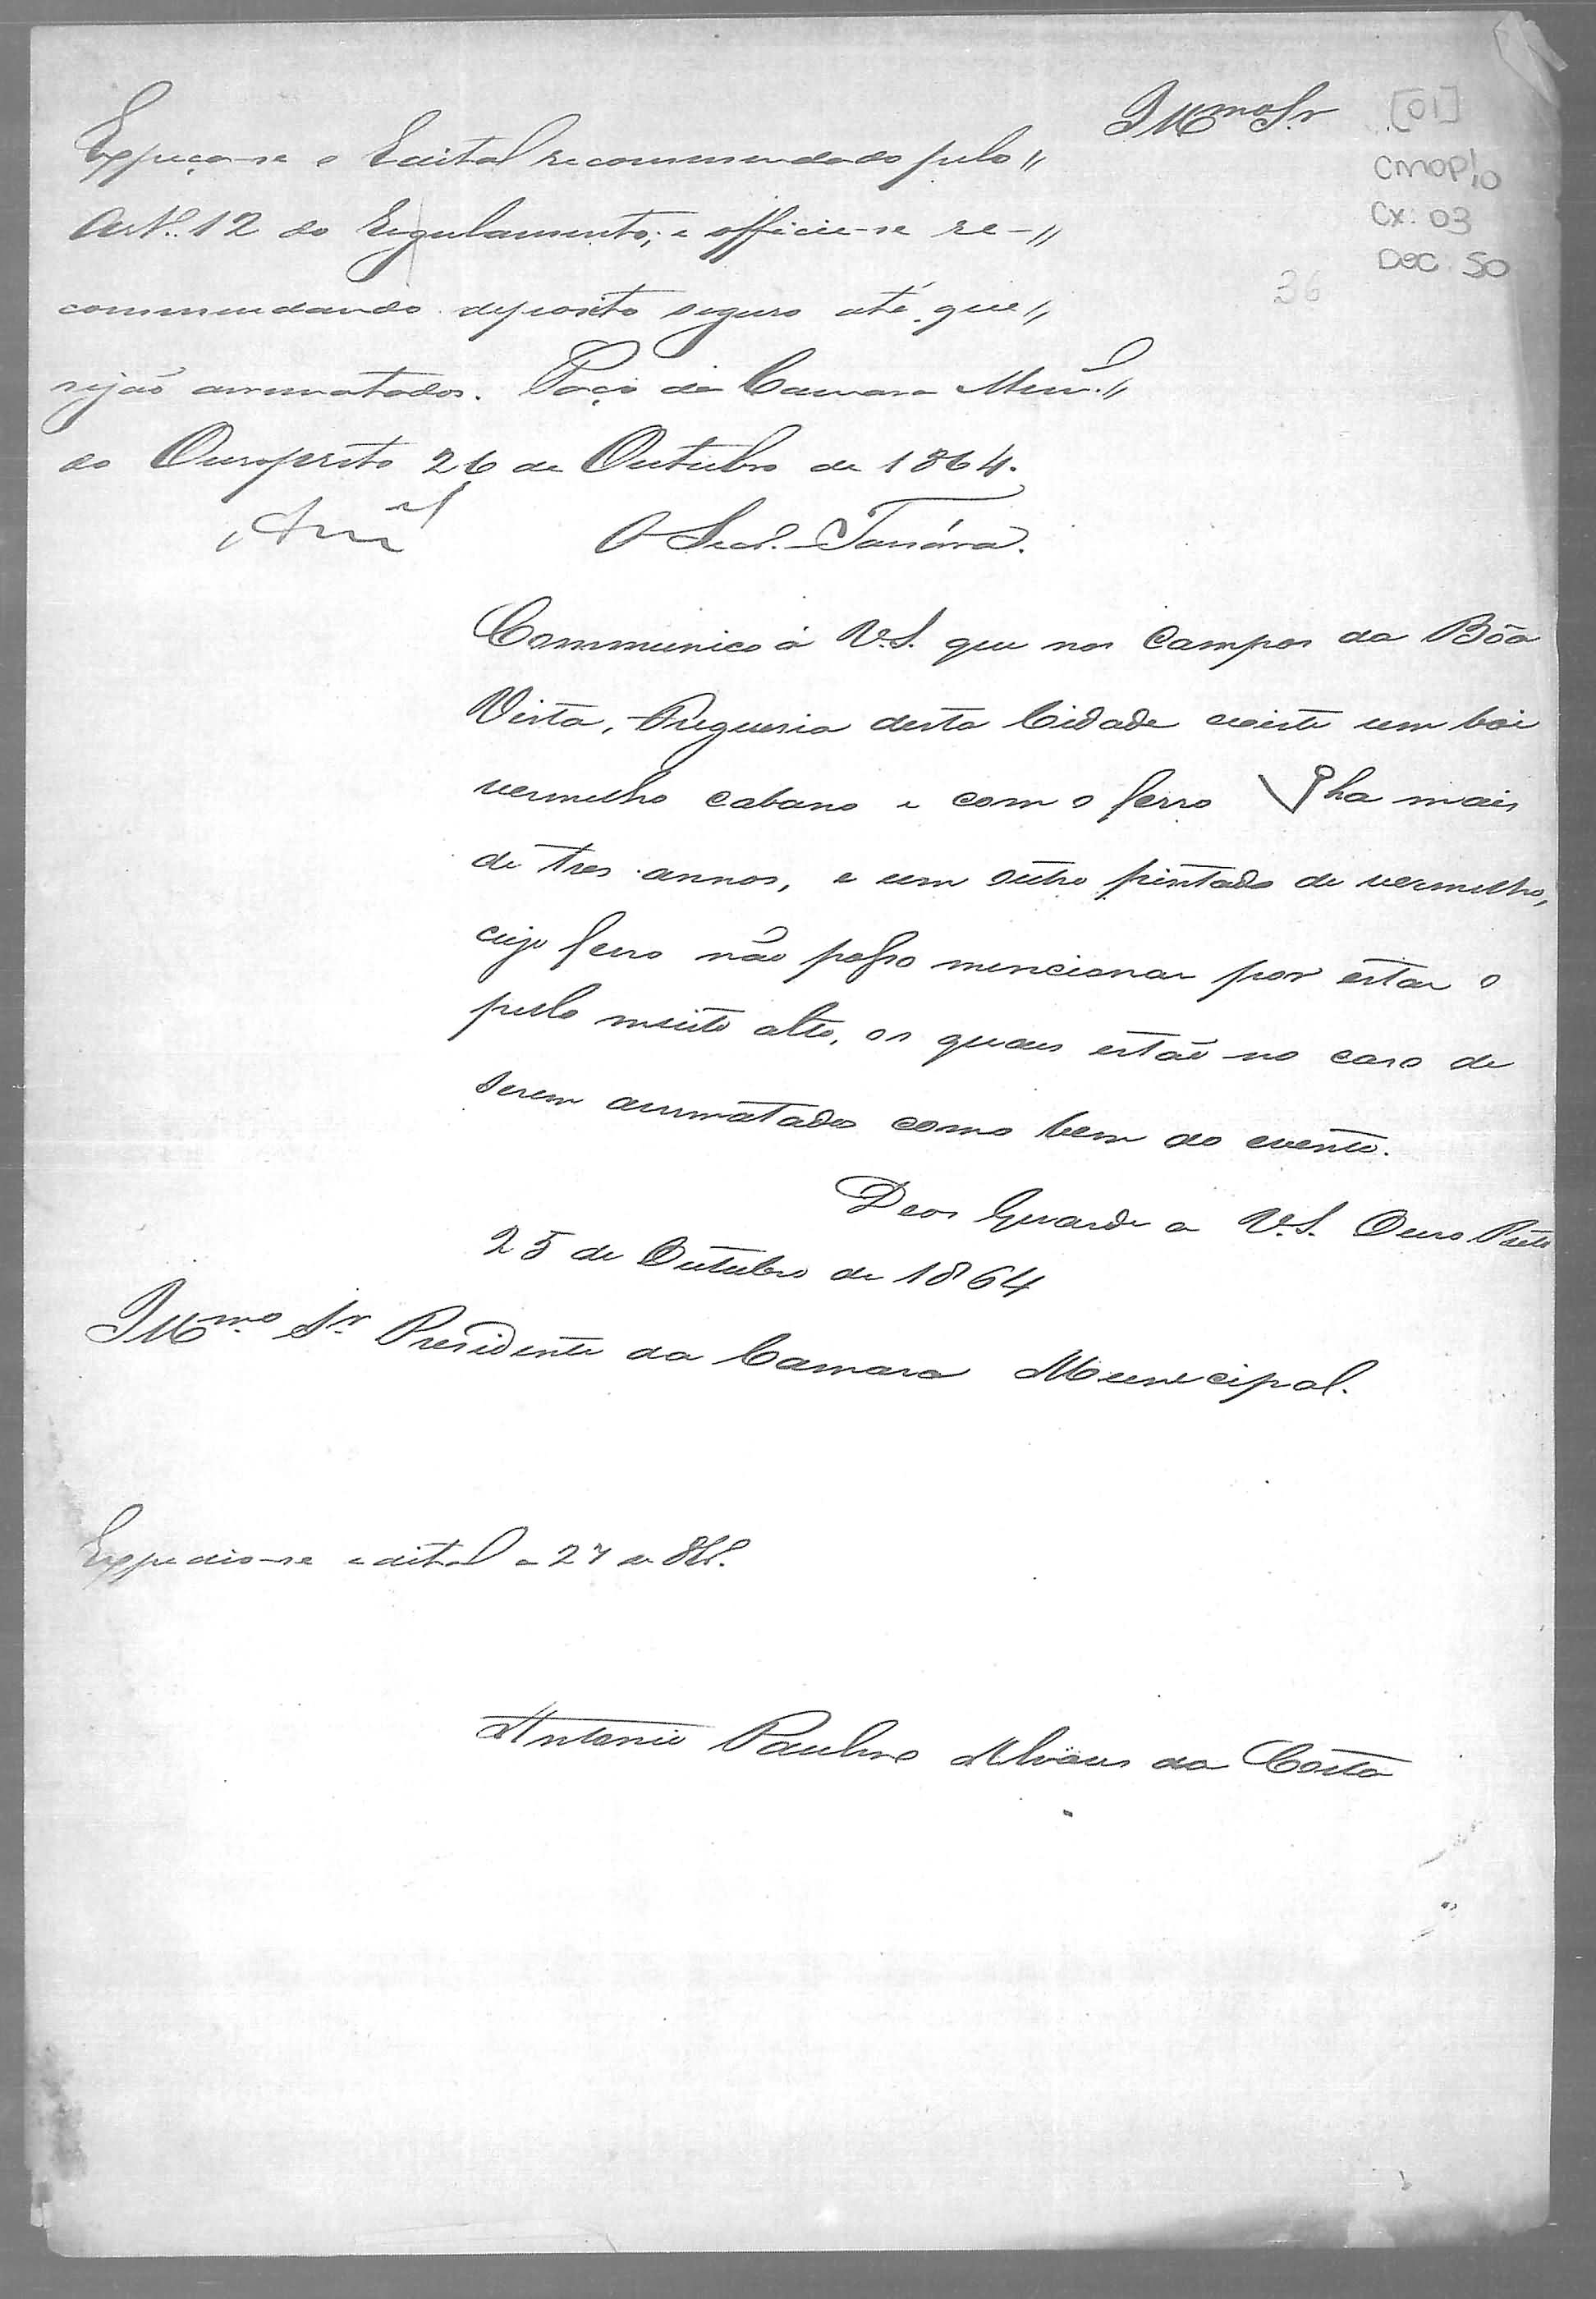 Illmo Sr.
[01]
CMOP10
Cx: 03
Doc. 50
36
Expeça-se o Edital recommendado pelo
Art. 12 do Regulamento; e officie-se re-
commendando deposito seguro até que
sejão arrematados. Paço da Camara Mun.
do Ouropreto 26 de Outubro de 1864.
O Secr.
Communico á V.S. que nos Campos da Bôa
Vista, Freguesia desta Cidade existe um boi
vermelho cabano e com o ferro ha mais
de tres annos, e um outro pintado de vermelho,
cujo ferro não posso mencionar por estar o
pello muito alto, os quaes estão no caso de
serem arrematados como bem do evento.
Deos Guarde a V.S. Ouro Preto
25 de Outubro de 1864
Illmo. Sr. Presidente da Camara Municipal.
Expedio-se edital a 27 de 8br.
Antonio Paulino Alvares da Costa